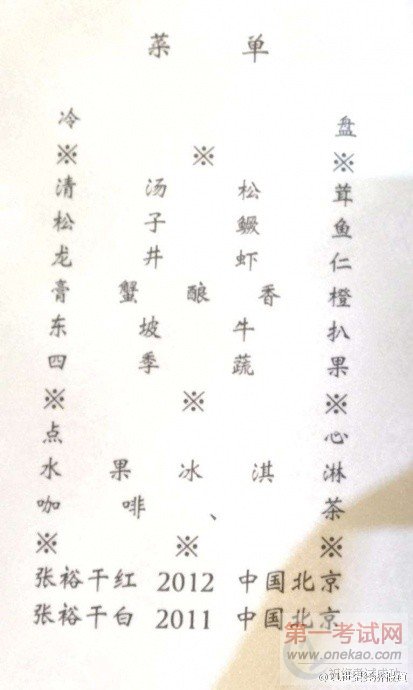 菜 单
冷 盘
※ ※ ※
清 汤 松 茸
松 子 鳜 鱼
龙 井 虾 仁
膏 蟹 酿 香 橙
东 坡 牛 扒
四 季 蔬 果
※ ※ ※
点 心
水 果 冰 淇 淋
咖 啡 、 茶
※ ※ ※
张裕干红 2012 中国北京
张裕干白 2011 中国北京
第一考试网
www.onekao.com